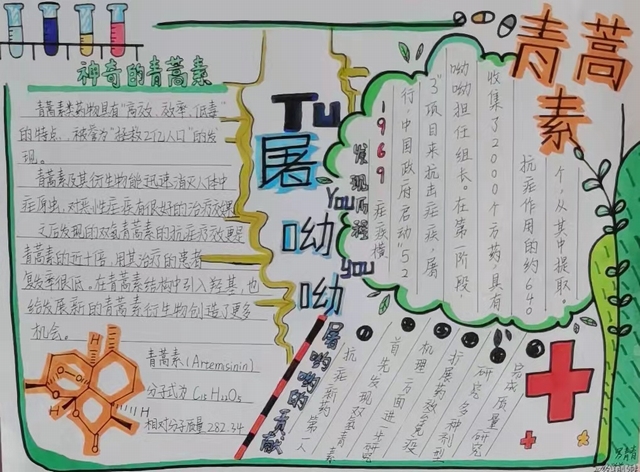 神奇的青蒿素
青蒿素类药物具有"高效、效率、低毒"
的特点，被誉为"拯救2亿人口"的发
现。
青蒿素及其衍生物能迅速消灭人体中
疟原虫，对恶性疟疾有很好的治疗效果
之后发现的双氢青蒿素的抗疟疗效更是
青蒿素的近十倍，用其治疗的患者
复发率很低。在青蒿素结构中引入羟基，也
给发展新的青蒿素衍生物创造了更多
机会。
H
O
O
O
H
H
青蒿素(Artemsinin)
分子式为C15H22O5
相对分子质量282.34
Tu
屠
呦
You
呦
you
青蒿
素
1969
发现历程
疟疾横
行中国政府启动"52
3"项目来抗击疟疾，屠
呦呦担任组长。在第一阶段，
收集了2000个方药，具有
抗疟作用的约640
个，从其中提取。
屠呦呦的贡献
抗疟新药第一人
首先发现双氢青蒿素
机理方面进一步研究
扩展药效免疫
研究多种剂型
完成质量研究